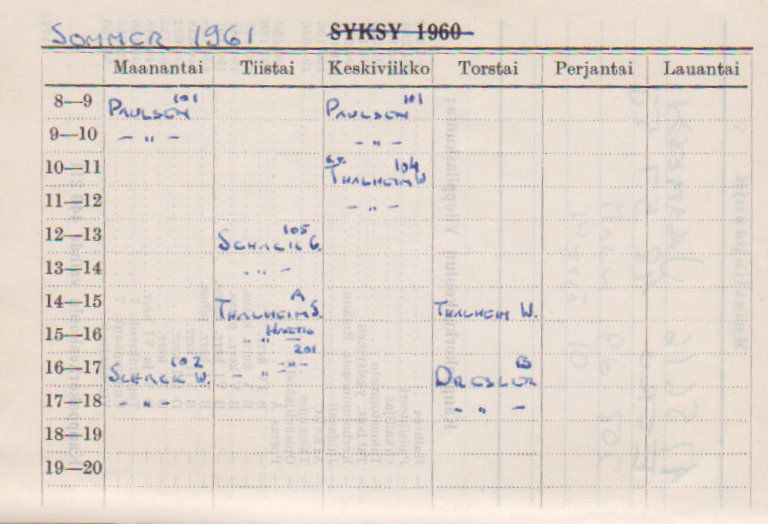 SOMMER 1961 SYKSY 1960
Maanantai Tiistai Keskiviikko Torstai Perjantai Lauantai
8—9 PAULSEN 101 PAULSEN 101
9—10 — " — — " —
10—11 THALHEIM W 104
11—12 — " —
12—13 SCHACK G. 105
13—14 — " —
14—15 THALHEIM S. A THALHEIM W.
15—16 — " —
16—17 SCHACK W. 102 — " — 201 DRESLER B
17—18 — " — — " —
18—19
19—20